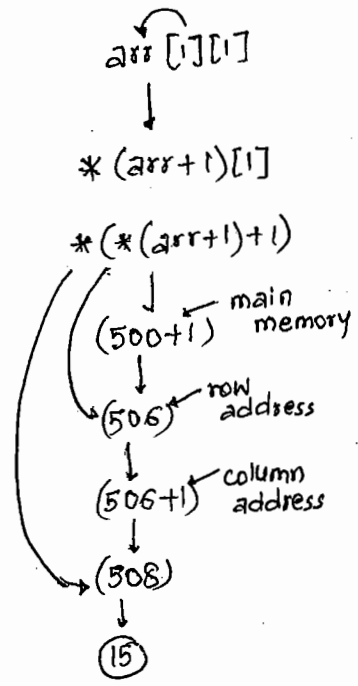 arr [1][1]
*(arr+1)[1]
*(*(arr+1)+1)
(500+1) main
memory
(506) row
address
(506+1) column
address
(508)
15